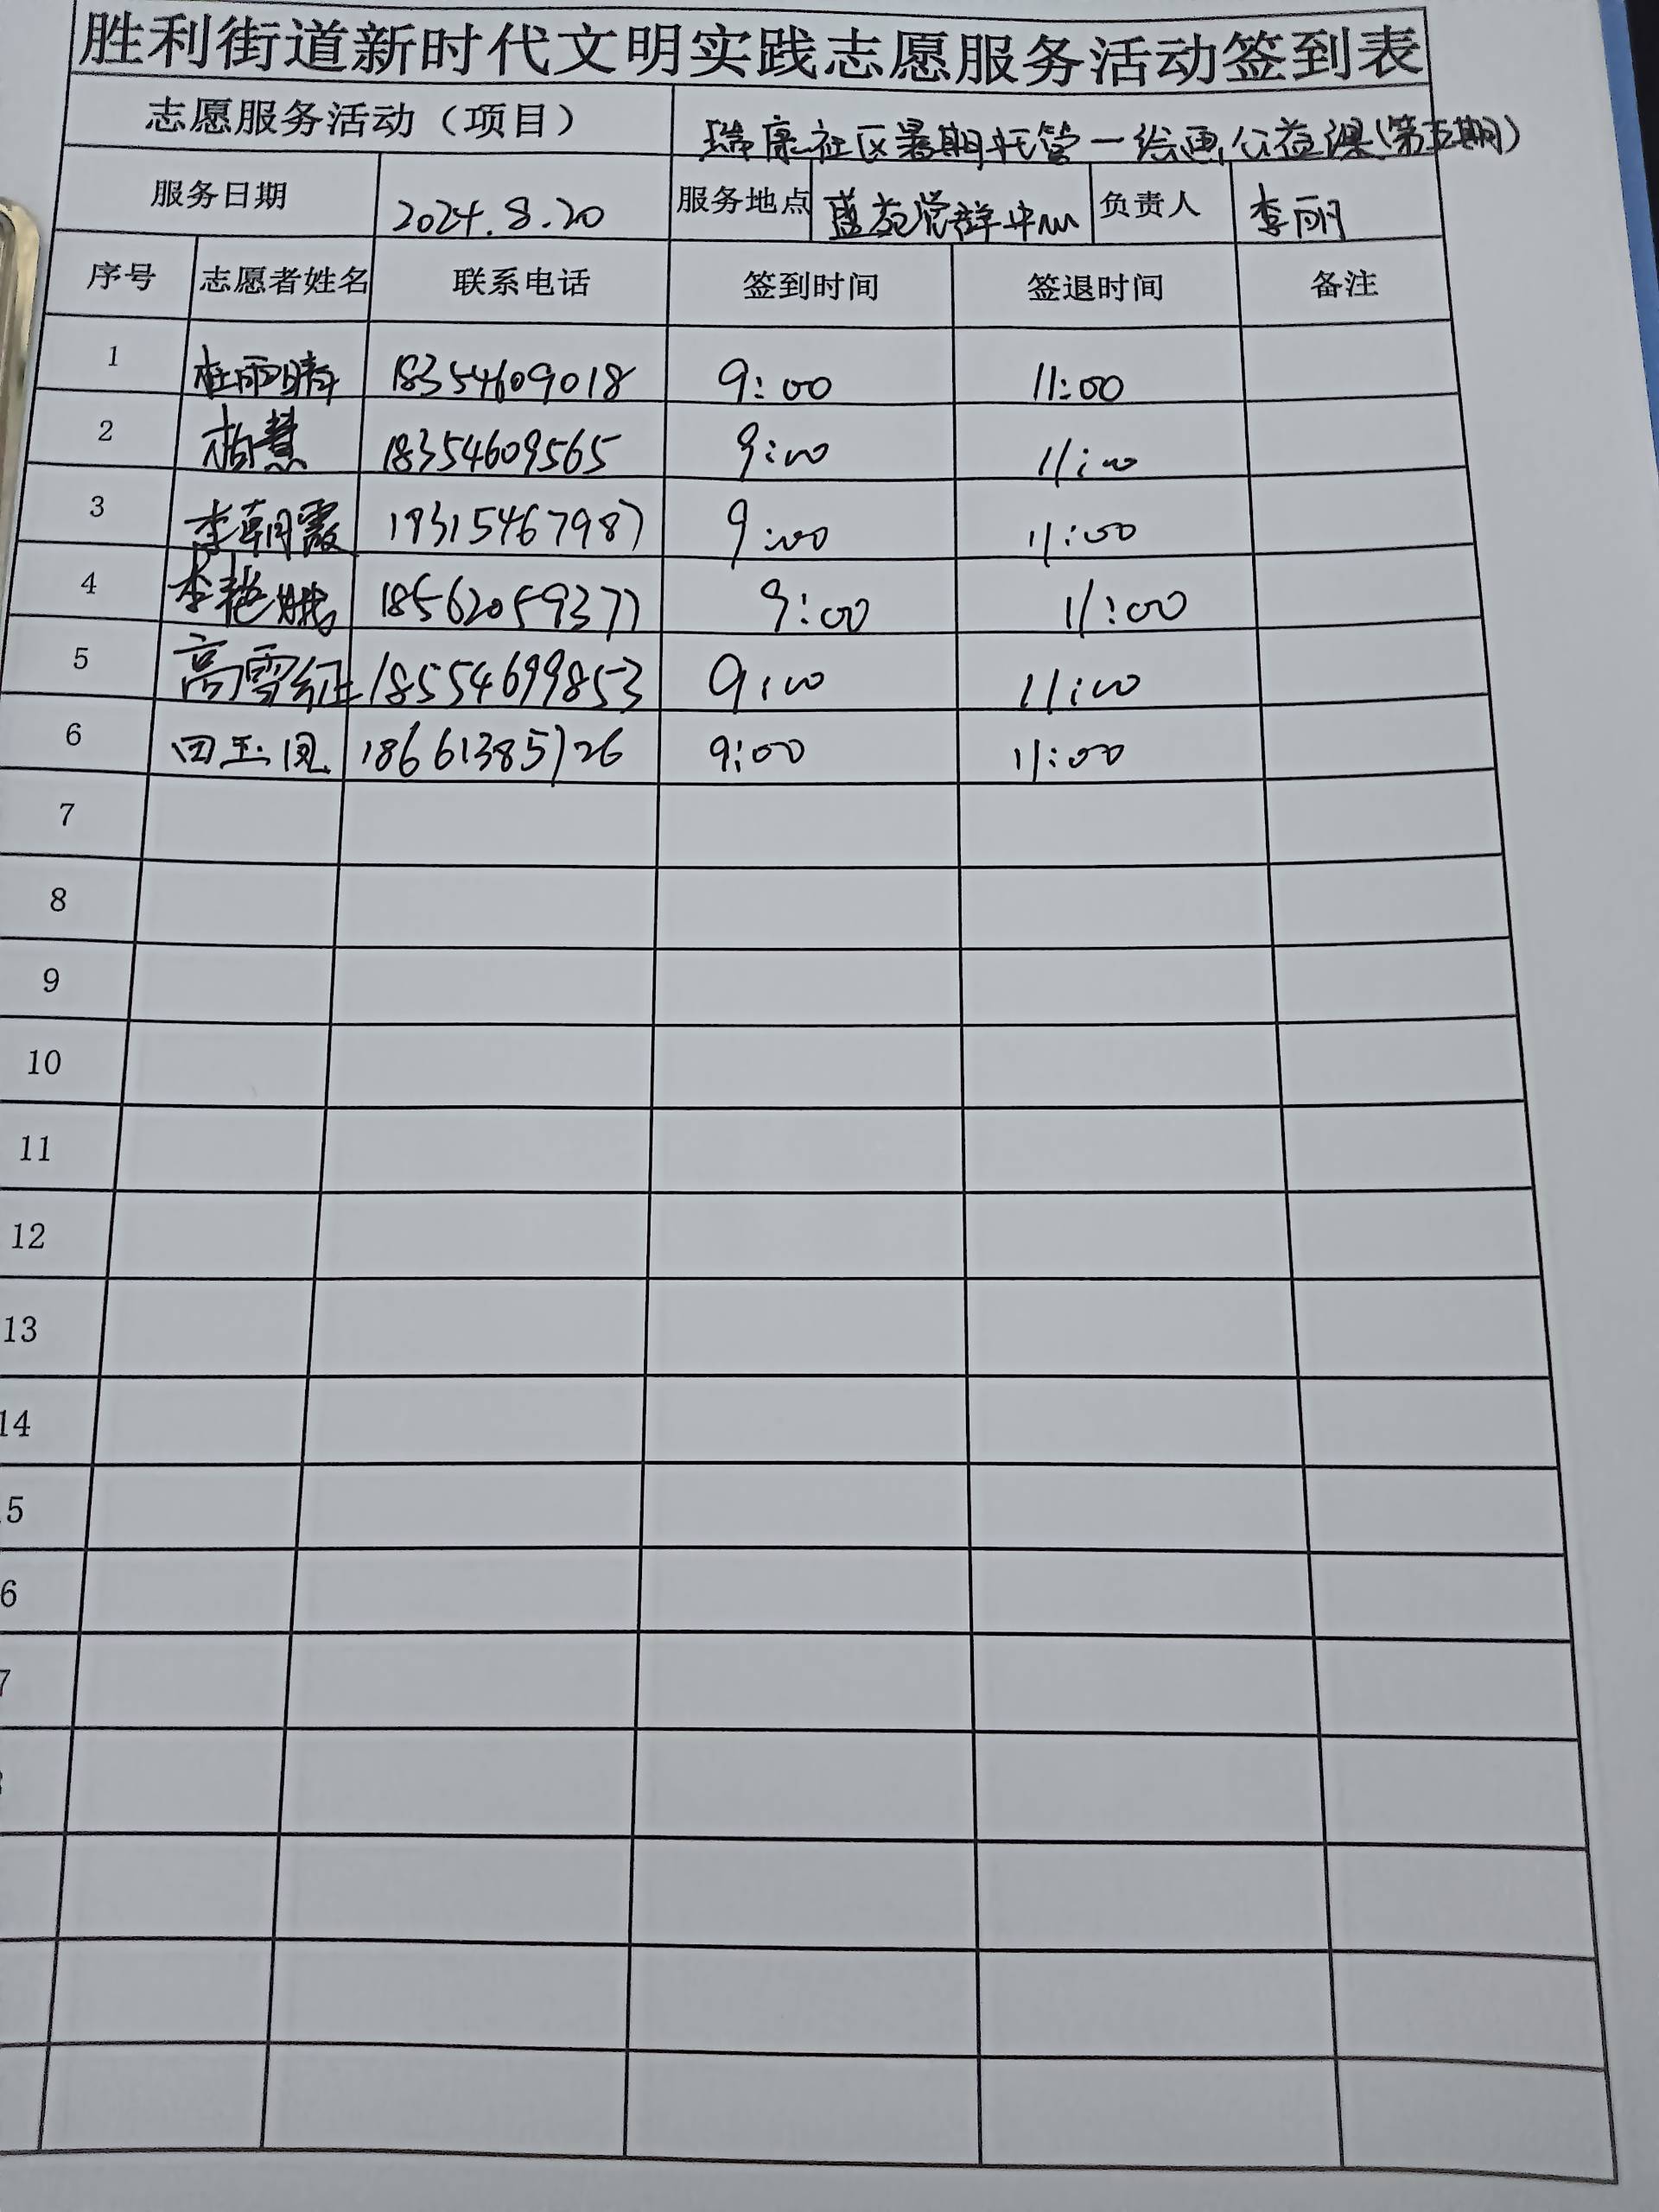 胜利街道新时代文明实践志愿服务活动签到表
志愿服务活动（项目） 瑞康社区暑期托管一绘画公益课(第五期)
服务日期 2024.8.20 服务地点 蓝苑党群中心 负责人 李丽
序号 志愿者姓名 联系电话 签到时间 签退时间 备注
1 杜雨晴 18354609018 9:00 11:00
2 柏慧 18354609565 9:00 11:00
3 李朝霞 18315467987 9:00 11:00
4 李艳娥 18562059377 9:00 11:00
5 高雪征 18554699853 9:00 11:00
6 田玉凤 18661385726 9:00 11:00
7
8
9
10
11
12
13
14
5
6
7